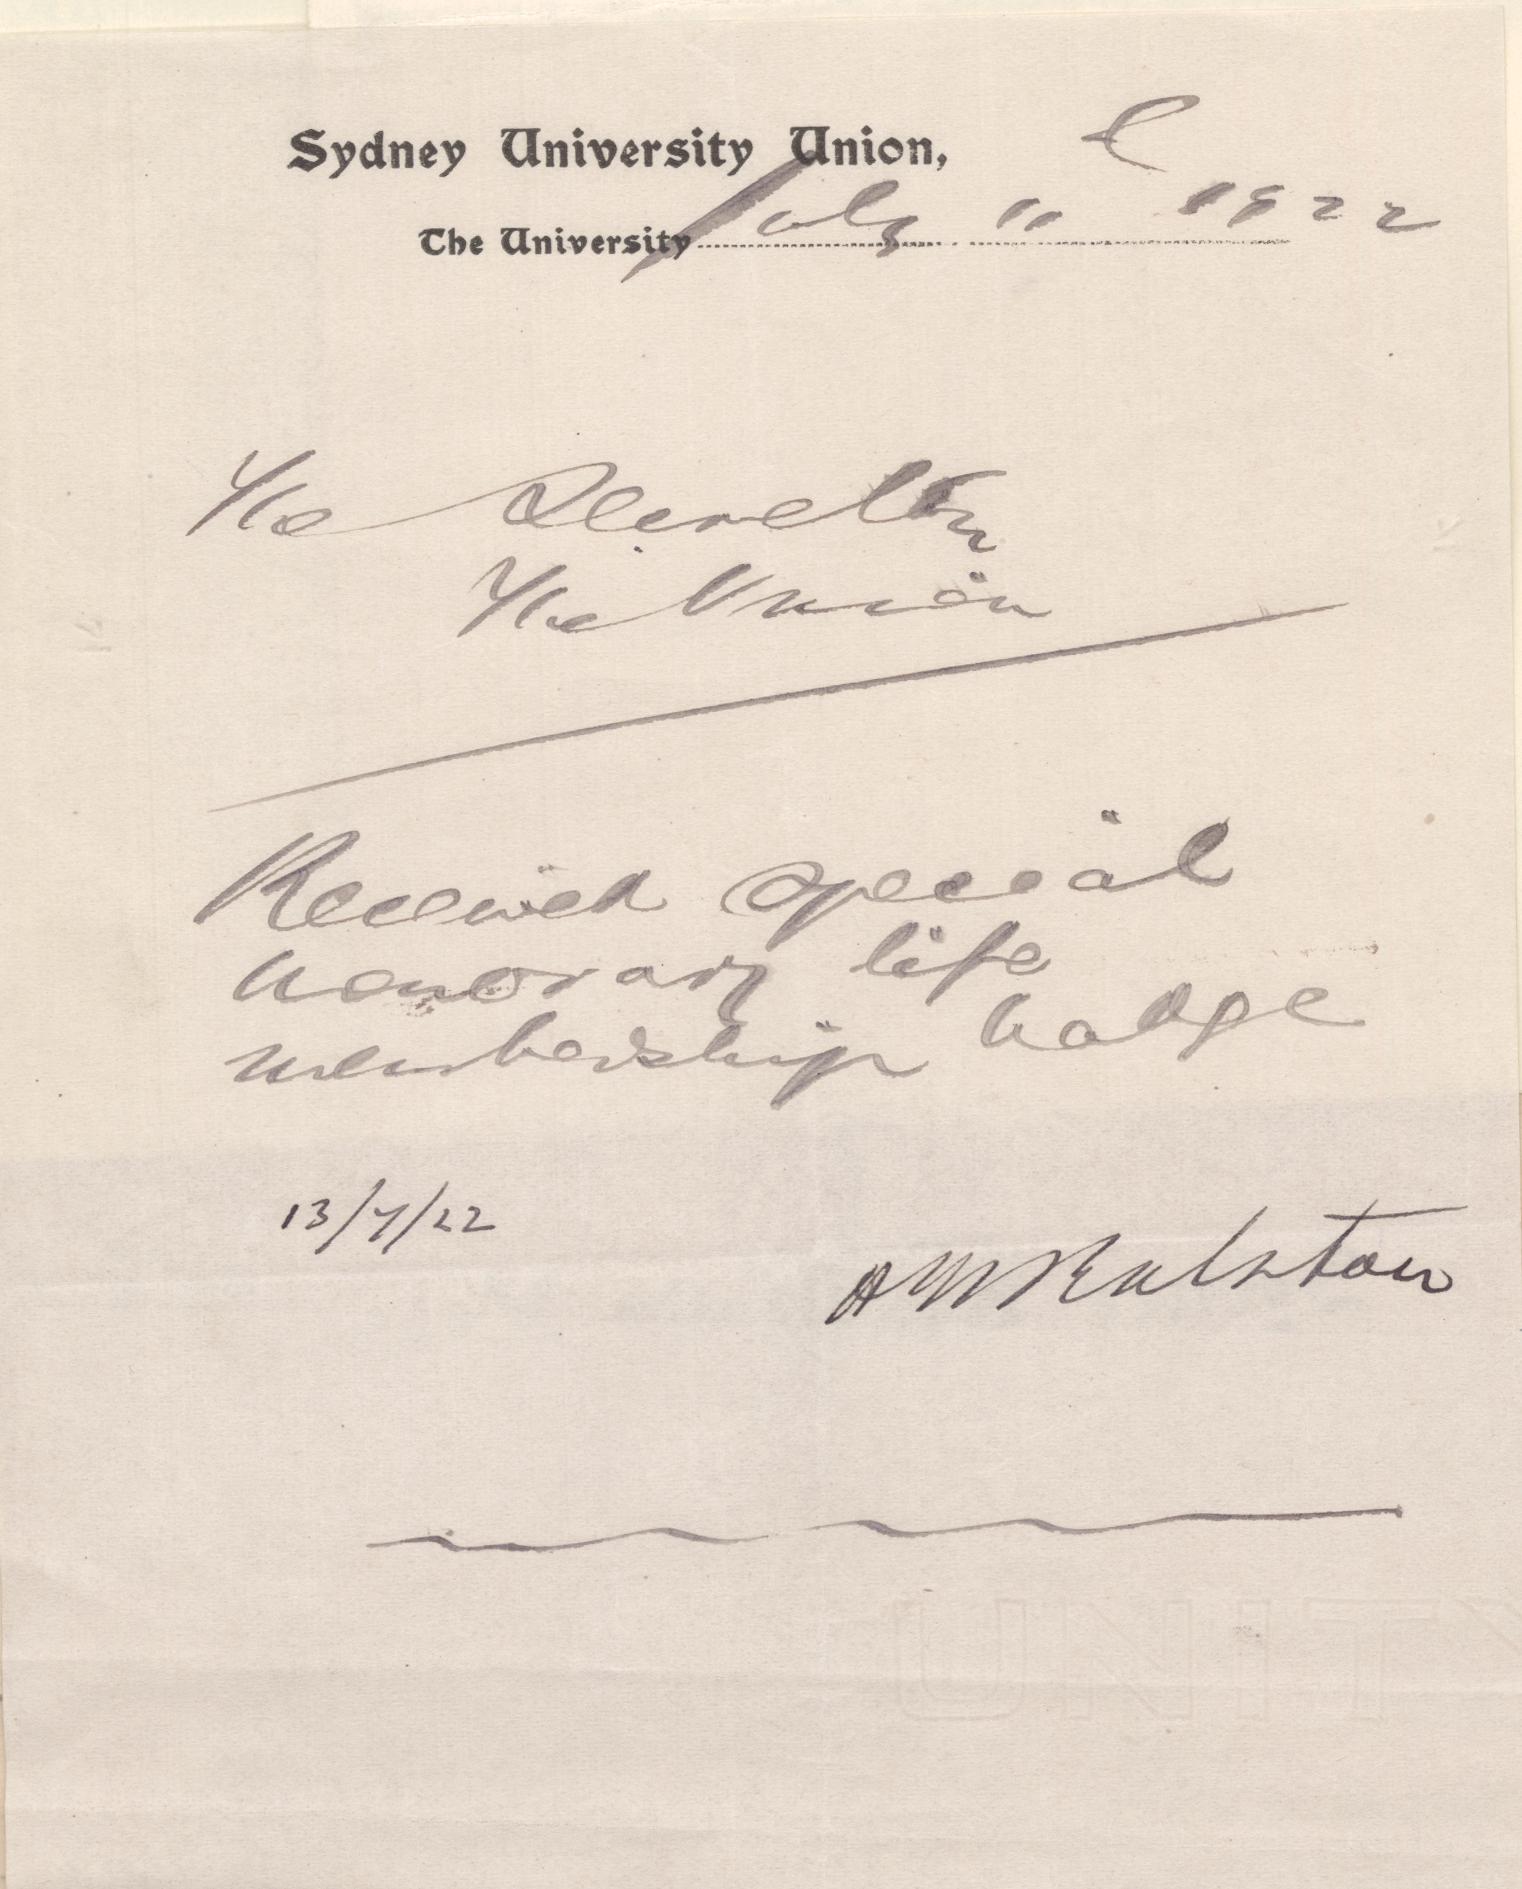 Sydney University Union,
The University July 11 1922
The Secretary
The Union
Received special
honorary life
membership badge
13/7/22
A W Ralston
UNITY